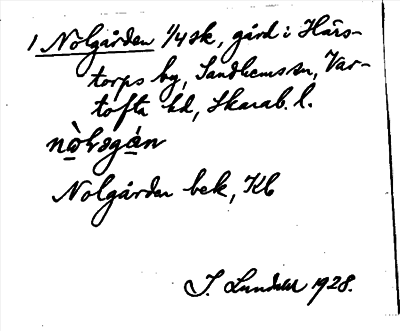 1 Nolgården 1/4 sk, gård i Härs-
torps by, Sandhems sn, Var-
tofta hd, Skarab. l.
Nolgården bek, Kb
I. Lundahl 1928.